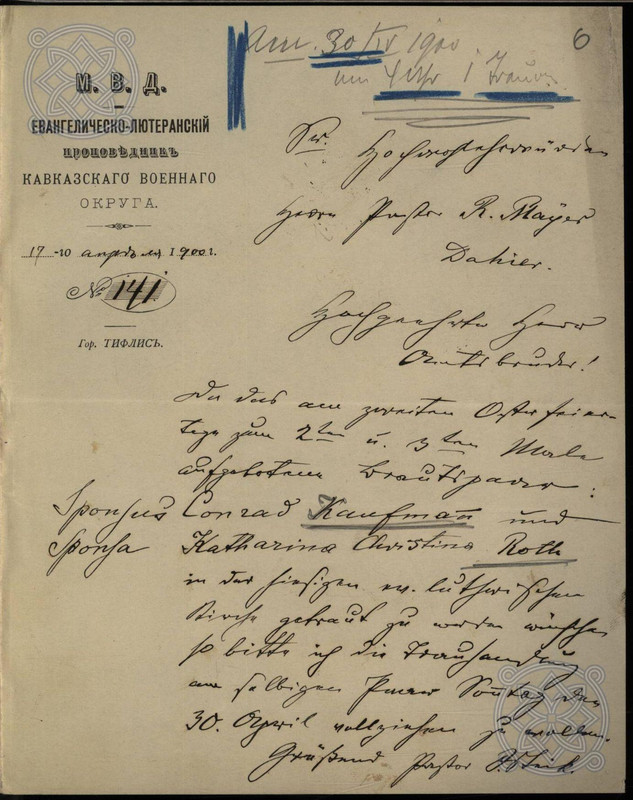 Am 30/IV 1900
um 4 Uhr 1 Trauung
6
М. В. Д.
ЕВАНГЕЛИЧЕСКО-ЛЮТЕРАНСКІЙ
ПРОПОВѢДНИКЪ
КАВКАЗСКАГО ВОЕННАГО
ОКРУГА.
17-го апрѣля 1900 г.
№ 141
Гор. ТИФЛИСЪ.
Sr. Hochwohlehrwürden
Herrn Pastor R. Mayer
Dahier.
Hochgeehrter Herr
Amtsbruder!
Da das am zweiten Osterfeier-
tage zum 2ten u. 3ten Male
aufgebotene Brautpaar:
Sponsus Conrad Kaufmann und
Sponsa Katharina Christina Roth
in der hiesigen ev. lutherischen
Kirche getraut zu werden wünscht,
so bitte ich die Trauhandlung
am selbigen Paare Sonntag den
30. April vollziehen zu wollen.
Grüßend Pastor